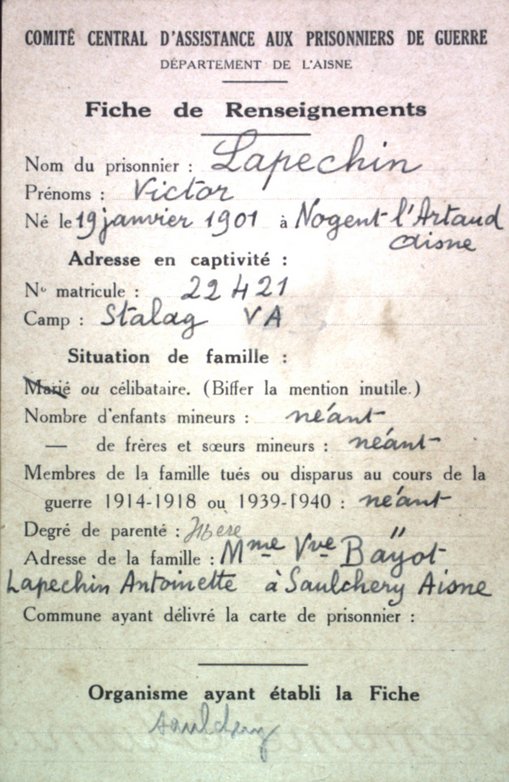 COMITÉ CENTRAL D'ASSISTANCE AUX PRISONNIERS DE GUERRE
DÉPARTEMENT DE L'AISNE
Fiche de Renseignements
Nom du prisonnier : Lapechin
Prénoms : Victor
Né le 19 janvier 1901 à Nogent-l'Artaud
Aisne
Adresse en captivité :
N° matricule : 22421
Camp : Stalag VA
Situation de famille :
Marié ou célibataire. (Biffer la mention inutile.)
Nombre d'enfants mineurs : néant
— de frères et sœurs mineurs : néant
Membres de la famille tués ou disparus au cours de la
guerre 1914-1918 ou 1939-1940 : néant
Degré de parenté : Mère
Adresse de la famille : Mme Vve Bayot
Lapechin Antoinette à Saulchery Aisne
Commune ayant délivré la carte de prisonnier :
Organisme ayant établi la Fiche
Saulchery